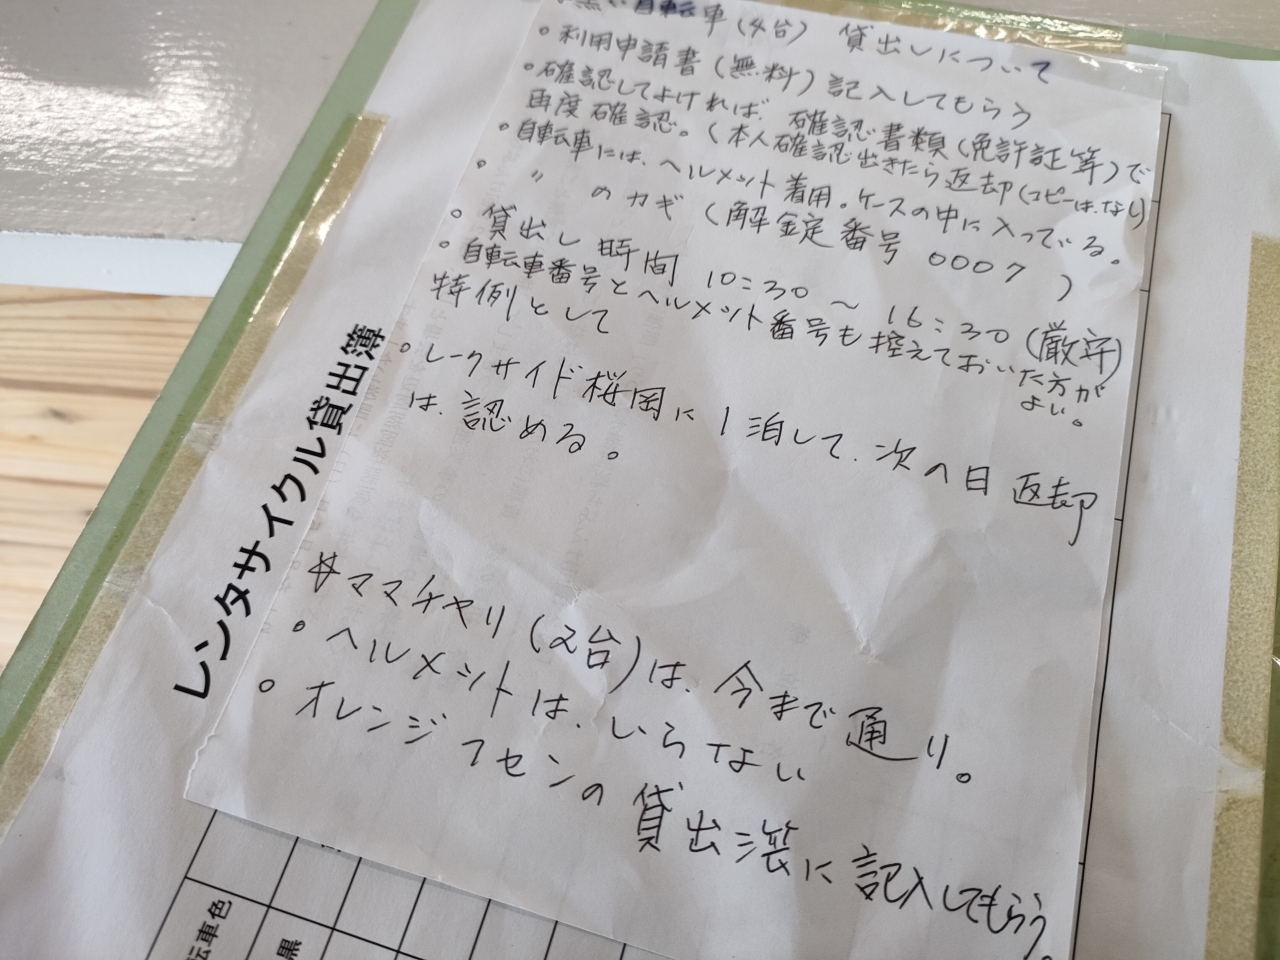 黒い自転車(4台) 貸出しについて
・利用申請書(無料)記入してもらう
・確認してよければ、確認書類(免許証等)で
再度確認。(本人確認出きたら返却(コピーは、なし)
・自転車には、ヘルメット着用。ケースの中に入っている。
・ 〃 のカギ(解錠番号 0007)
・貸出し時間 10:30 ~ 16:30(厳守)
・自転車番号とヘルメット番号も控えておいた方が
よい。
特例として
・レークサイド桜岡に1泊して、次の日返却
は、認める。
レンタサイクル貸出簿
☆ママチャリ(2台)は、今まで通り。
・ヘルメットは、いらない
・オレンジフセンの貸出簿に記入してもらう。
転車色
黒